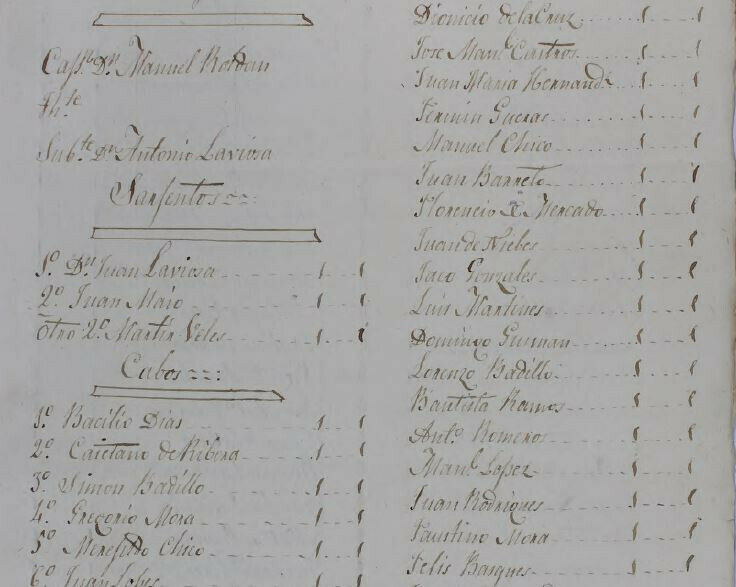 Capn. Dn. Manuel Roldan
Thte.
Subte. Dn. Antonio Laviosa
Sarjentos
1º. Dn. Juan Laviosa 1 1
2º. Juan Maio 1 1
Otro 2º. Martin Veles 1 1
Cabos
1º. Bacilio Dias 1 1
2º. Caietano de Ribera 1 1
3º. Simon Badillo 1 1
4º. Gregorio Mora 1 1
5º. Chico 1 1
6º. Juan Lopes
Dionicio de la Cruz 1 1
Jose Manl. Castros 1 1
Juan Maria Hernandz 1 1
Fermin Gueras 1 1
Manuel Chico 1 1
Juan Barreto 1 1
Florencio Mercado 1 1
Juan de Niebes 1 1
Jaco Gonzales 1 1
Luis Martines 1 1
Domingo Gusman 1 1
Lorenzo Badillo 1 1
Bautista Ramos 1 1
Anto. Romeros 1 1
Manl. Lopez 1 1
Juan Rodriques 1 1
Faustino Mora 1 1
Felis Basques 1 1